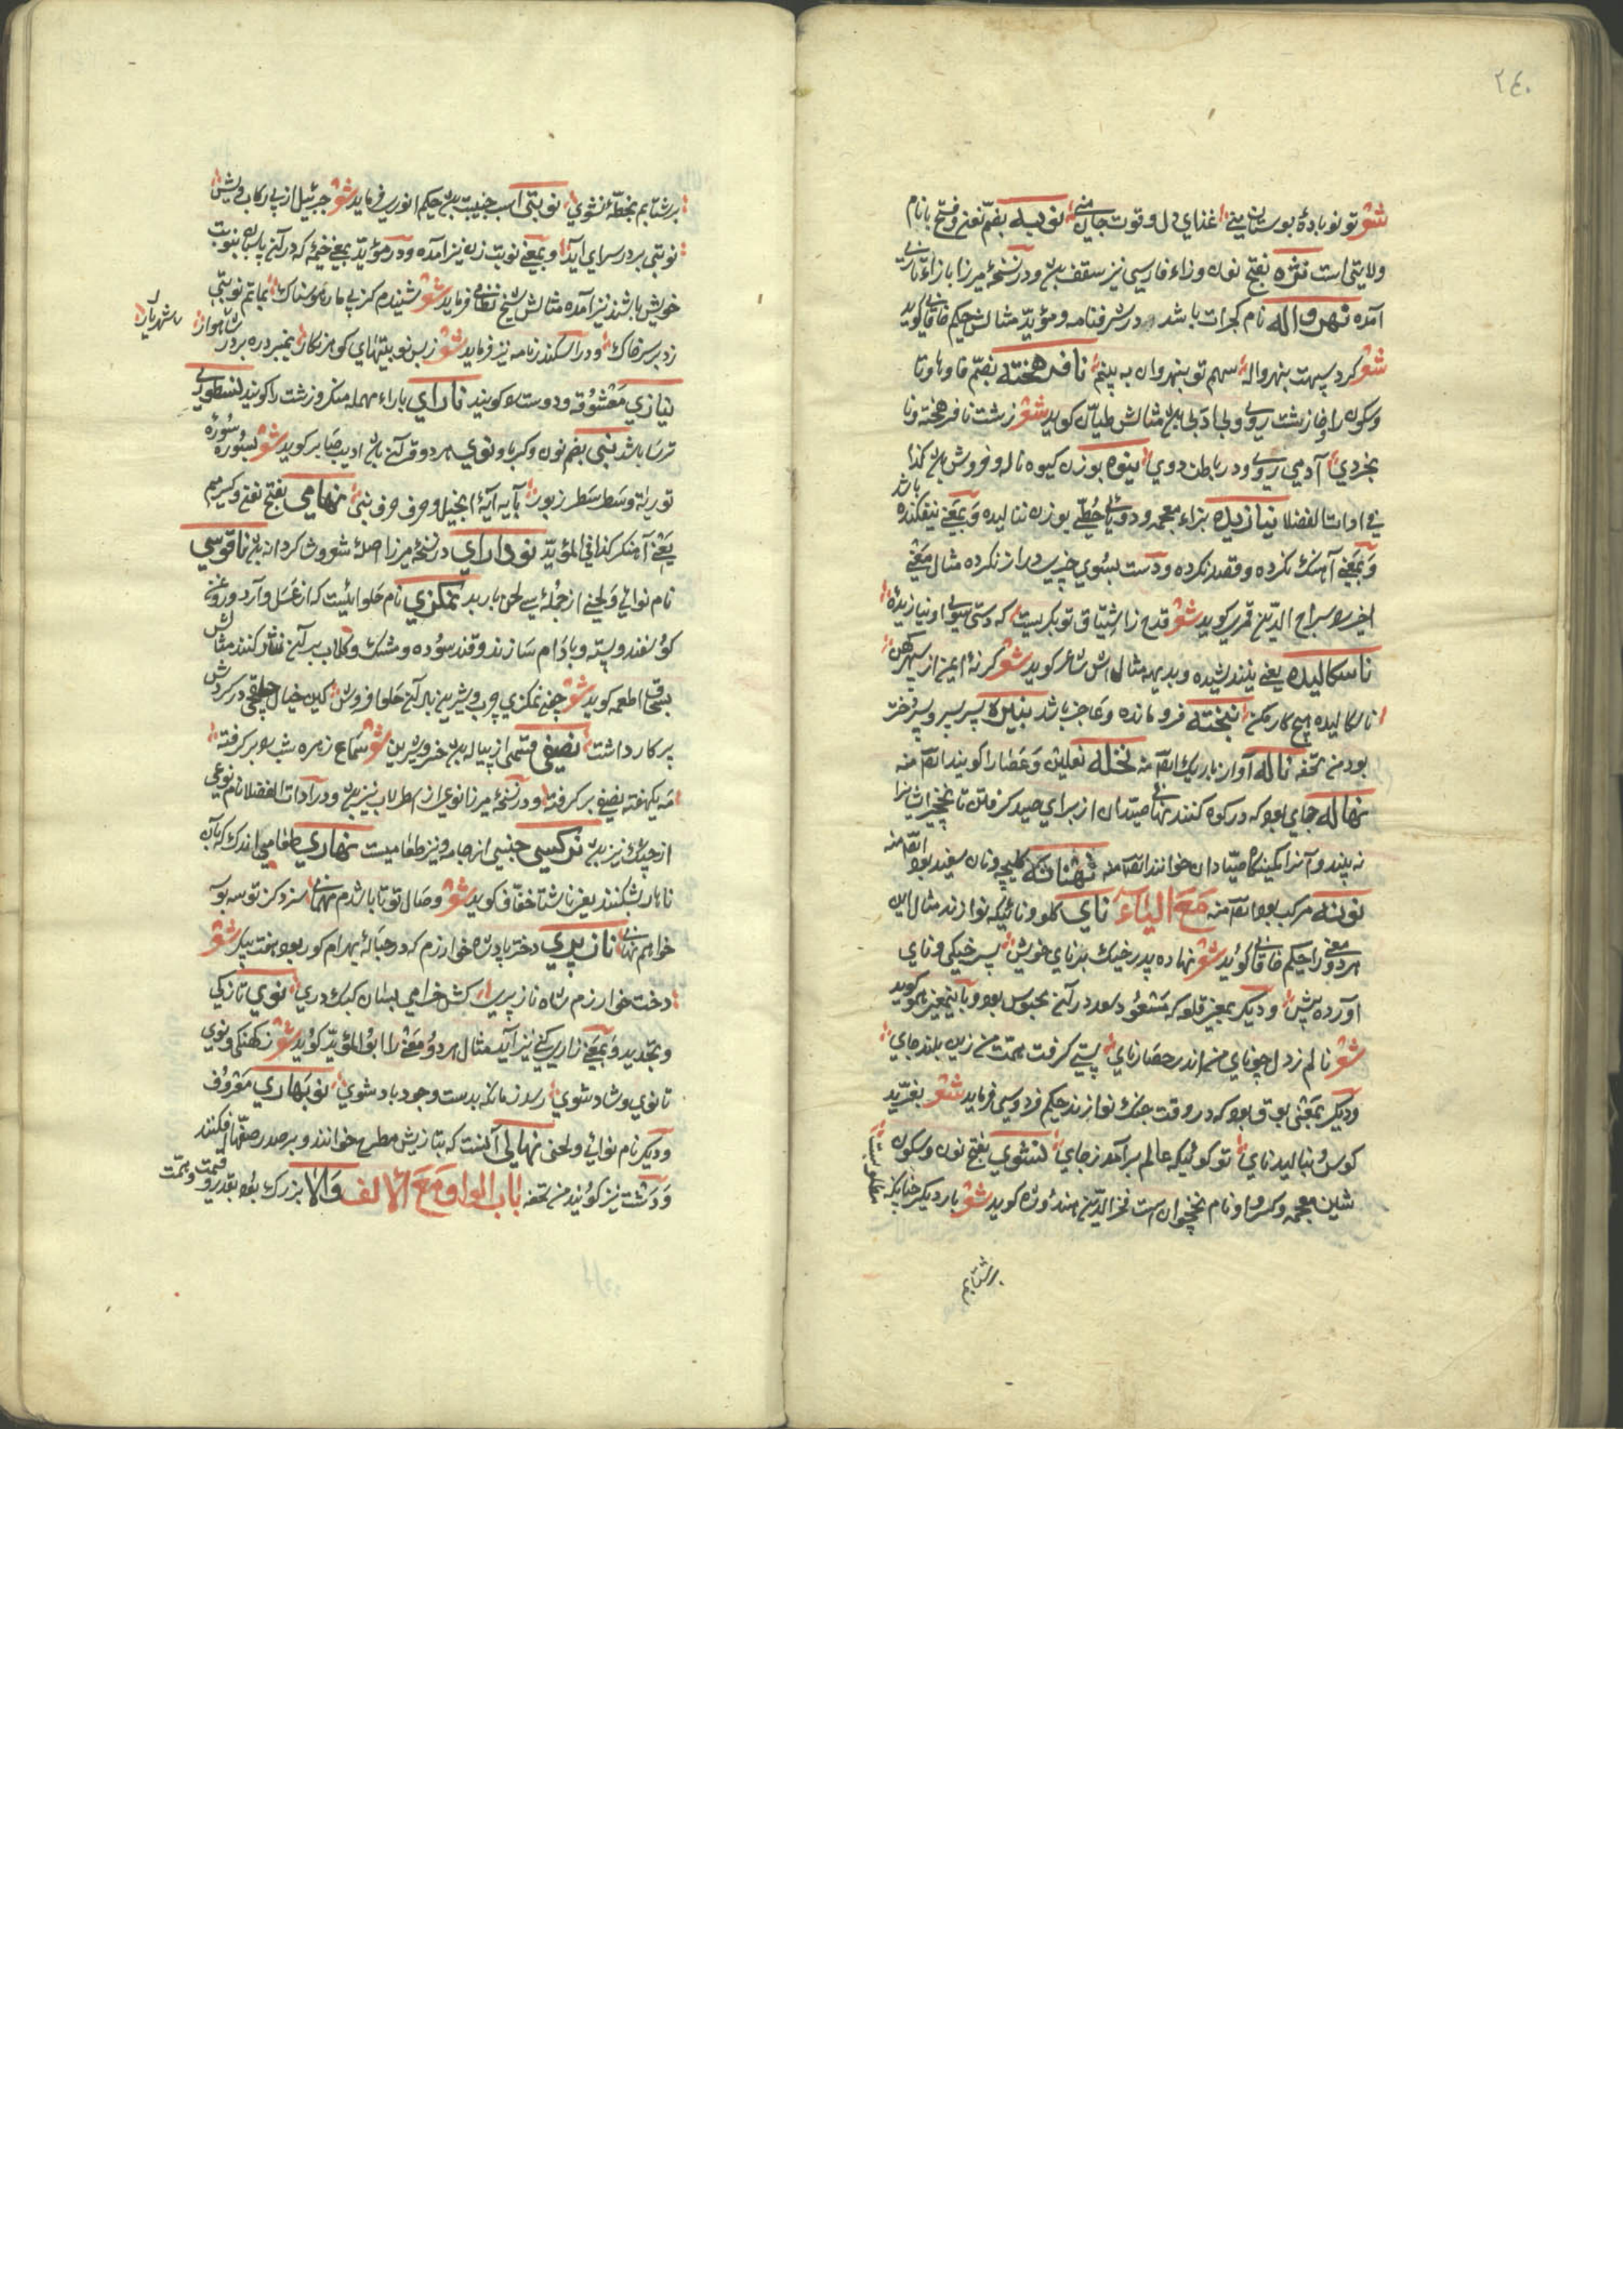 ٢٤٠
شعر تو نوباده بوستان منی غذای دل و قوت جان منی نوبه بضم نون و فتح با نام
ولایتی است نژه بفتح نون و زاء فارسی نیز سقف بود و در نسخهٔ میرزا بازاء تازی
آمده نهرواله نام گجرات باشد در شرفنامه و مؤید مثالش حکیم خاقانی گوید
شعر کرد سپهت بنهرواله سهم تو بنهروان به بینم نافرهخته بضم فا و ها و تا
و سکون را و خا زشت روی و بی ادب بود مثالش طیان گوید شعر زشت نافرهخته و نا
بخردی آدمی روی و در باطن ددی بنوه بوزن کیوه ناله و خروش بود کذا
فی ادات الفضلا نیازیده بزاء معجمه و دو یای حطی بوزن ننالیده و بمعنی نیفکنده باشد
و بمعنی آهنگ نکرده و قصد نکرده و دست بسوی چیزی دراز نکرده مثال معنی
اخیر سراج الدین قمری گوید شعر قدح ز اشتیاق تو بگریست که دستی بسوی او نیازیده
ناسکالیده یعنی نیندیشیده و بدیهه مثالش شاعر گوید شعر گر نهٔ ایمن از سپهر کهن
ناسکالیده هیچ کار مکن نخته فرو مانده و عاجز باشد نبیره پسر پسر و پسر دختر
بود من تحفه ناله آواز باریک ایضا منه نخله نعلین و عصا را گویند ایضا منه
نهاله جای بود که در کوه کنند نهانی صیدان از برای صید گرفتن تا نخچیر ایشانرا
نه بیند و آنرا کمینگاه صیادان خوانند ایضا منه نهنانه کلیچه و نان سفید بود ایضا منه
نونه مرکب بود ایضا منه مع الیاء نای گلو و نائیکه نوازند مثال این
هر دو معنی را حکیم خاقانی گوید شعر نهاده پدر خیک بر نای خویش پس خیکی و نای
آورده پیش و دیگر بمعنی قلعه که مسعود سعد در آن محبوس بود و باینمعنی هم او گوید
شعر نالم ز دل چو نای من اندر حصار نای پستی گرفت همت من زین بلند جای
و دیگر بمعنی بوق بود که در وقت جنگ نوازند حکیم فردوسی فرماید شعر بغرید
کوس و بنالید نای تو گوئیکه عالم بر آمد ز جای نشوی بفتح نون و سکون
شین معجمه و کسر واو نام نخجوان است فخر الدین هندوشاه گوید شعر بار دیگر چنانکه
برشتابم
برشتابم بخطهٔ نشوی نوبتی اسب جنیبت بود حکیم انوری فرماید شعر جبرئیل از پی رکاب رویش
نوبتی بر در سرای آید و بمعنی نوبت زن نیز آمده و در مؤید بمعنی خیمه که در آن پاسبان بنوبت
خویش باشند نیز آمده مثالش شیخ نظامی فرماید شعر شنیدم کز پی ماریموسناک بماتم نوبتی
زد بر سر خاک و در اسکندرنامه نیز فرماید شعر زبس نوبتیهای گوهر نگار نمیبرده بر در شاهوار شهریار
نیازی معشوقه و دوست را گویند نارای باراء مهمله منکر و زشت را گویند نسطوری
ترسا باشد نبی بضم نون و کسر با و نوی هر دو قرآن بود ادیب صابر گوید شعر بسوره سوره
توریة و سطر سطر زبور بآیه آیهٔ انجیل و حرف حرف نبی نهامی بفتح نون و کسر میم
یعنی آهنگر کذا فی المؤید نودارای در نسخهٔ میرزا صلهٔ شعر و شاگردانه بود ناقوسی
نام نوائی و لحنی از جملهٔ سی لحن باربد نمکزی نام حلوائیست که از عسل و آرد و روغن
گوسفند و پسته و بادام سازند و قند سوده و مشک و گلاب بر آن نثار کنند مثالش
بسحاق اطعمه گوید شعر چنین نمکزی چرب و شیرین بر آن حلوا فروش کین خیال چلقی در گردش
پرکار داشت نصفی قسمی از پیاله بود خسرو شیرین شعر سماع زهره شب را بر گرفته
مه یکهفته نصفی بر گرفته و در نسخهٔ میرزا نوعی از اسطرلاب نیز بود و در آدات الفضلا نام نوعی
از چنگ نیز بود نرگسی جنسی از جامه و نیز طعامیست نهاری طعامی اندک که بآن
ناهار بشکنند یعنی ناشتا خفاف گوید شعر وصال تو تا باشدم میهمانی سزد کز تو سه بوسه
خواهم نهاری نازپری دختر پادشاه خوارزم که در حبالهٔ بهرام گور بود هفت پیکر شعر
دخت خوارزم شاه نازپری کش خرامی بسان کبک دری نوی تازگی
و تجدید و بمعنی زاری کنی نیز آید مثال هر دو معنی را ابو المؤید گوید شعر ز کهنگی و نوی
تا نوی و شاد شوی رسد زمانکه بدست وجود باد شوی نوبهاری معروف
و دیگر نام نوائی و لحنی نهالی آنست که بتازیش مطرح خوانند و بر صدر صفها افکنند
و دشت نیز گویند من تحفه باب الواو مع الالف والا بزرگ بود بقدر و قیمت و همت